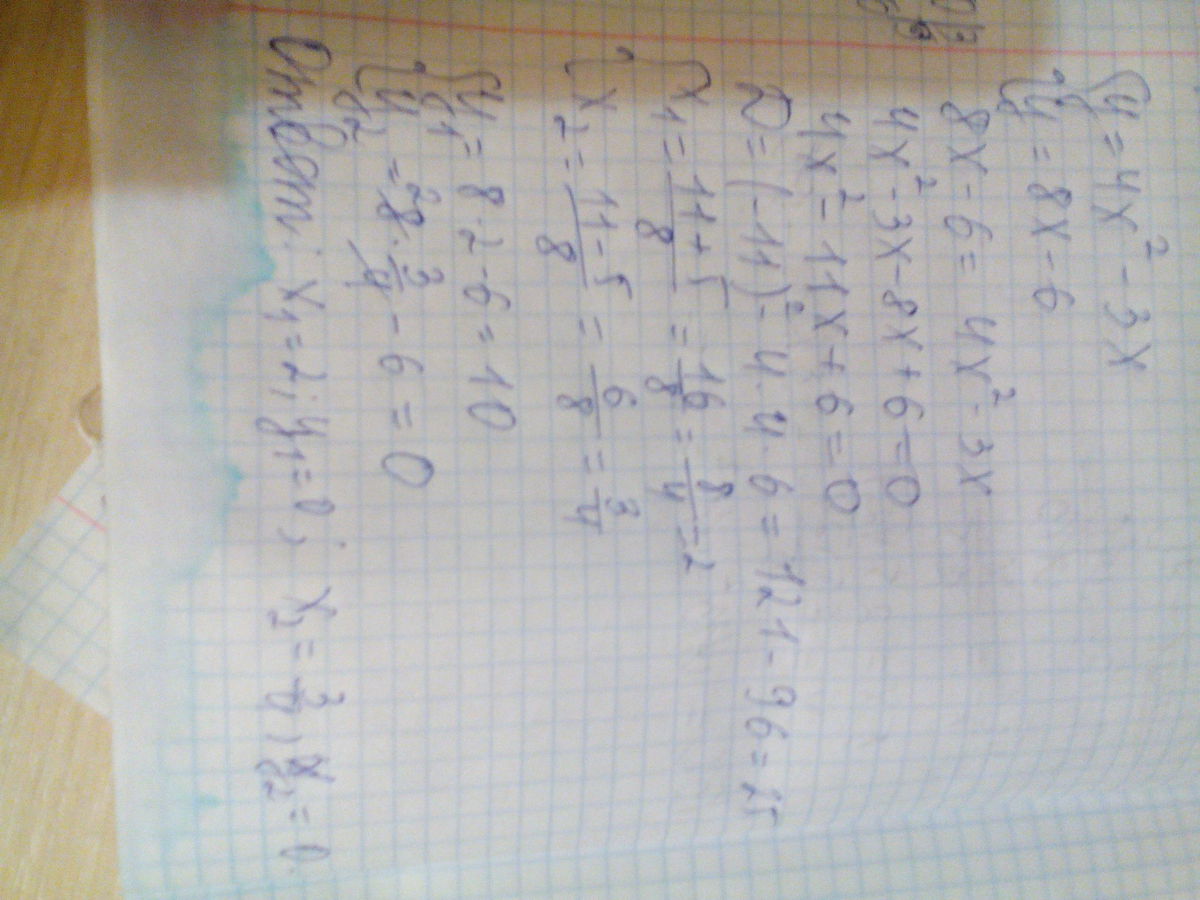 y = 4x² - 3x
y = 8x - 6
8x - 6 = 4x² - 3x
4x² - 3x - 8x + 6 = 0
4x² - 11x + 6 = 0
D = (-11)² - 4 · 4 · 6 = 121 - 96 = 25
x₁ = 11+5/8 = 16/8 = 8/4 = 2
x₂ = 11-5/8 = 6/8 = 3/4
y₁ = 8 · 2 - 6 = 10
y₂ = ²8 · 3/4 - 6 = 0
Ответ: x₁ = 2; y₁ = 0; x₂ = 3/4; y₂ = 0